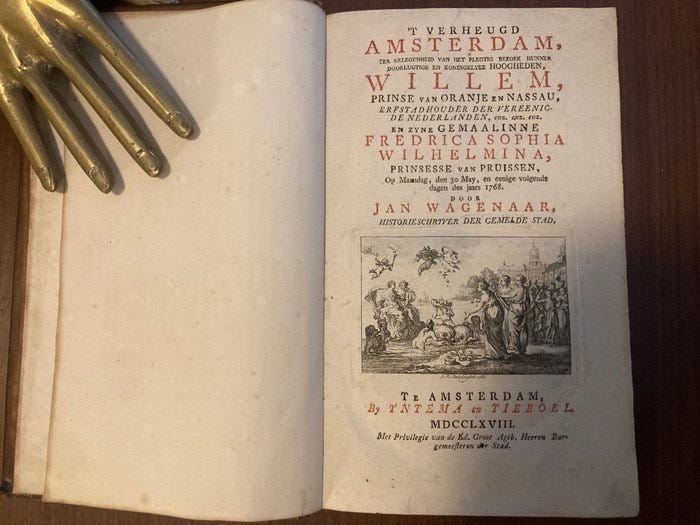 'T VERHEUGD
AMSTERDAM,
TER GELEGENHEID VAN HET PLEGTIG BEZOEK HUNNER
DOORLUGTIGE EN KONINGKLYKE HOOGHEDEN,
WILLEM,
PRINSE VAN ORANJE EN NASSAU,
ERFSTADHOUDER DER VEREENIG-
DE NEDERLANDEN, enz. enz. enz.
EN ZYNE GEMAALINNE
FREDRICA SOPHIA
WILHELMINA,
PRINSESSE VAN PRUISSEN,
Op Maandag, den 30 May, en eenige volgende
dagen des jaars 1768.
DOOR
JAN WAGENAAR,
HISTORIESCHRYVER DER GEMELDE STAD.
TE AMSTERDAM,
By YNTEMA en TIEBOEL,
MDCCLXVIII.
Met Privilegie van de Ed. Groot Agtb. Heeren Bur-
gemeesteren der Stad.